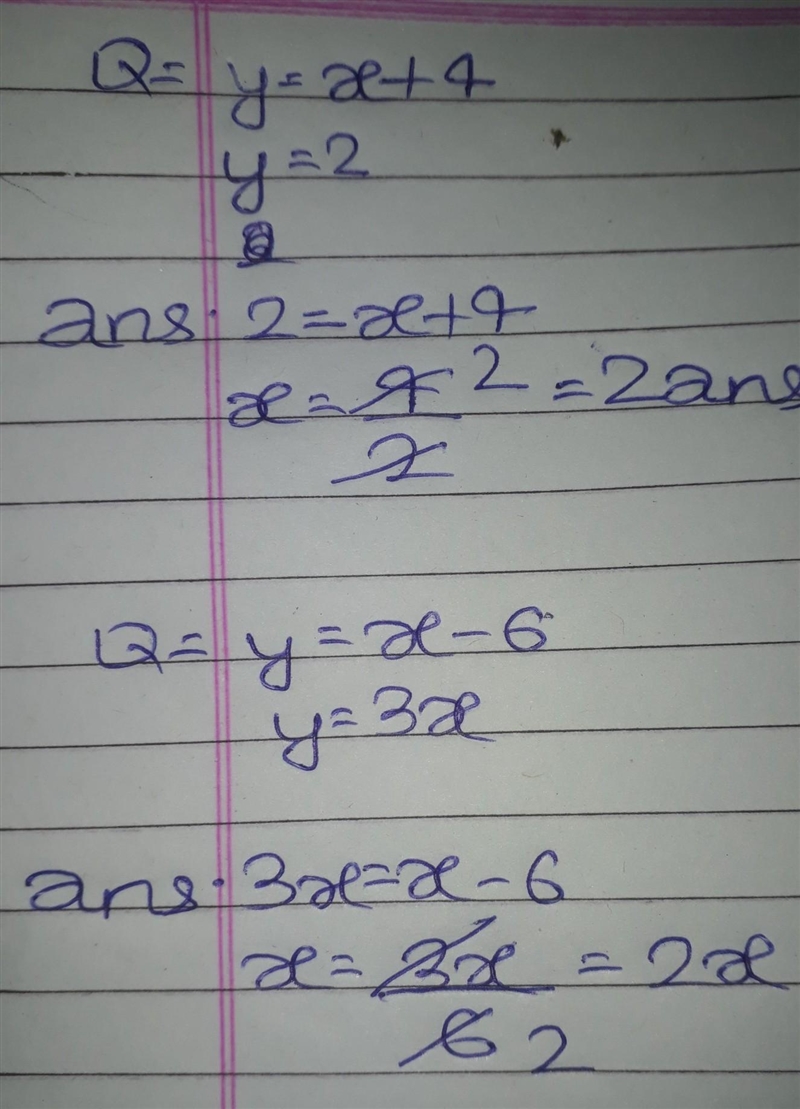 Q= y=x+4
y=2
ans. 2=x+4
x=4/2 2=2ans
Q= y=x-6
y=3x
ans. 3x=x-6
x=3x/6 2=2x